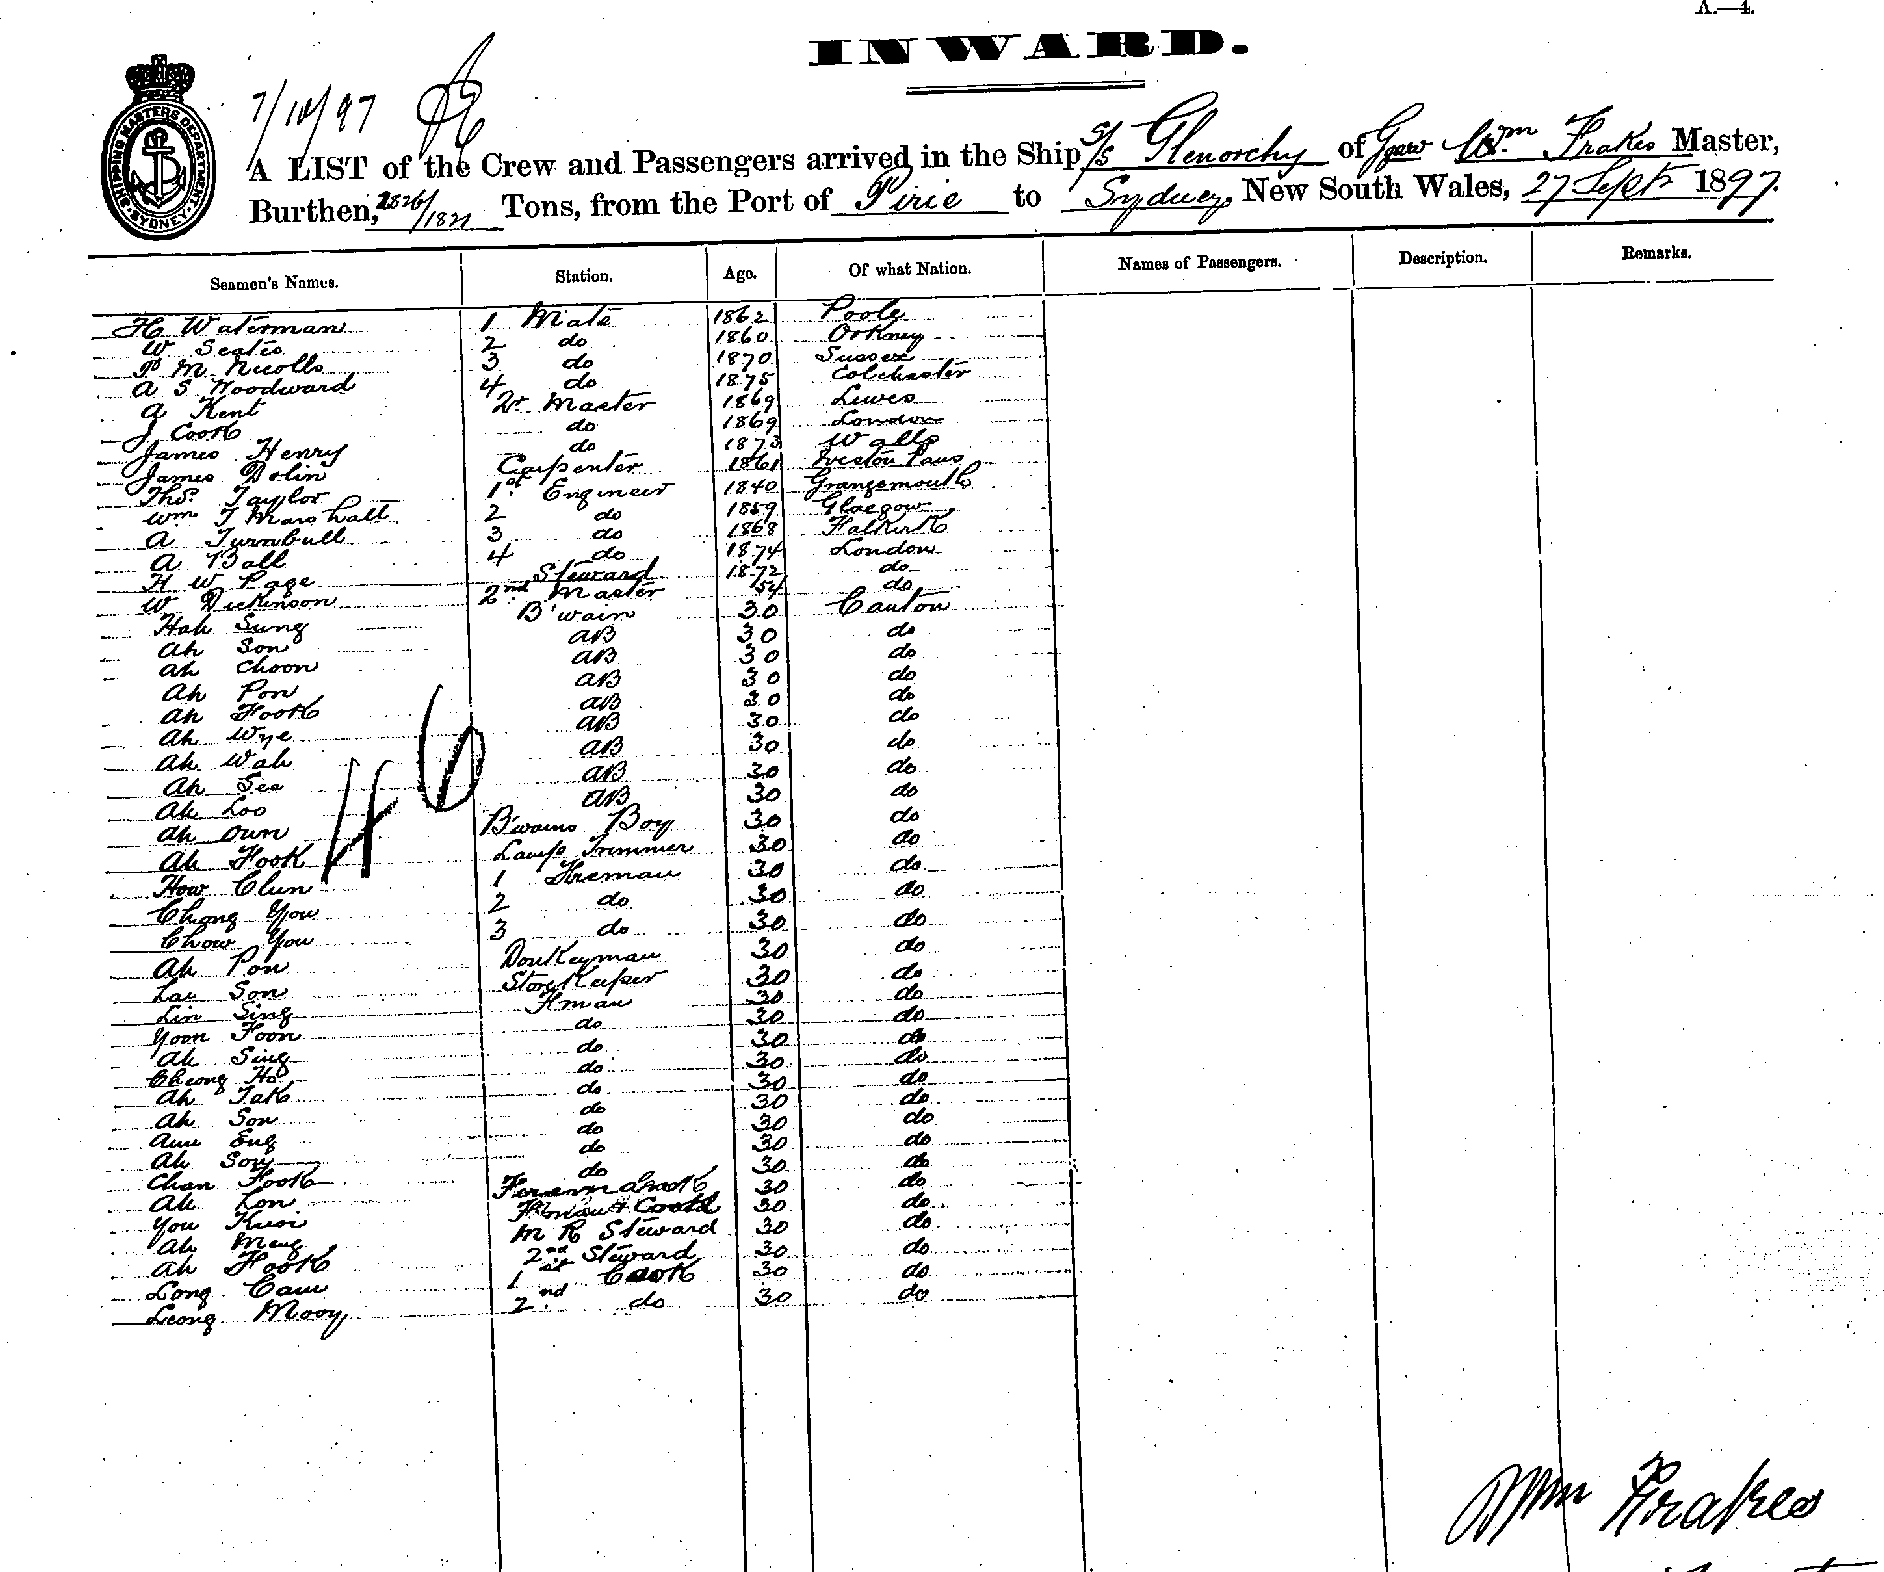 A.—4.
INWARD.
7/10/97
SHIPPING MASTERS DEPARTMENT. SYDNEY
A LIST of the Crew and Passengers arrived in the Ship S/s Glenorchy of Wm Frakes Master,
Burthen, 2826/1822 Tons, from the Port of Pirie to Sydney, New South Wales, 27 Sept 1897.
Seamen's Names. Station. Age. Of what Nation. Names of Passengers. Description. Remarks.
H Waterman 1 Mate 1862 Poole
W Seates 2 do 1860 Orkney
P M Nicolls 3 do 1870 Sussex
A S Woodward 4 do 1875 Colchester
A Kent Qr Master 1869 Lewes
J Cook do 1869 London
James Henry do 1873 Walls
James Dolin Carpenter 1861 Preston Pans
Thos. Taylor 1st Engineer 1840 Grangemouth
Wm T Marshall 2 do 1859 Glasgow
A Turnbull 3 do 1868 Falkirk
A Ball 4 do 1874 London
H W Page Steward 1872 do
W Dickinson 2nd Master 54 do
Hah Sung B'wain 30 Canton
Ah Son AB 30 do
Ah Choon AB 30 do
Ah Pon AB 30 do
Ah Fook AB 30 do
Ah Wye AB 30 do
Ah Wah AB 30 do
Ah See AB 30 do
Ah Loo AB 30 do
Ah Oun B'wains Boy 30 do
Ah Fook Lamp Trimmer 30 do
How Clun 1 Fireman 30 do
Chong You 2 do 30 do
Chow You 3 do 30 do
Ah Pon Donkeyman 30 do
Lai Son Storekeeper 30 do
Lin Sing Fman 30 do
Yoon Foon do 30 do
Ah Sing do 30 do
Cheong Ho do 30 do
Ah Tak do 30 do
Ah Son do 30 do
Aun Eng do 30 do
Ah Soy do 30 do
Chan Fook do 30 do
Ah Lon 30 do
You Kuoi Cook 30 do
Ah Meng M R Steward 30 do
Ah Fook 2nd Steward 30 do
Long Cam 1st Cook 30 do
Leong Mooy 2nd do 30 do
46
Wm Frakes